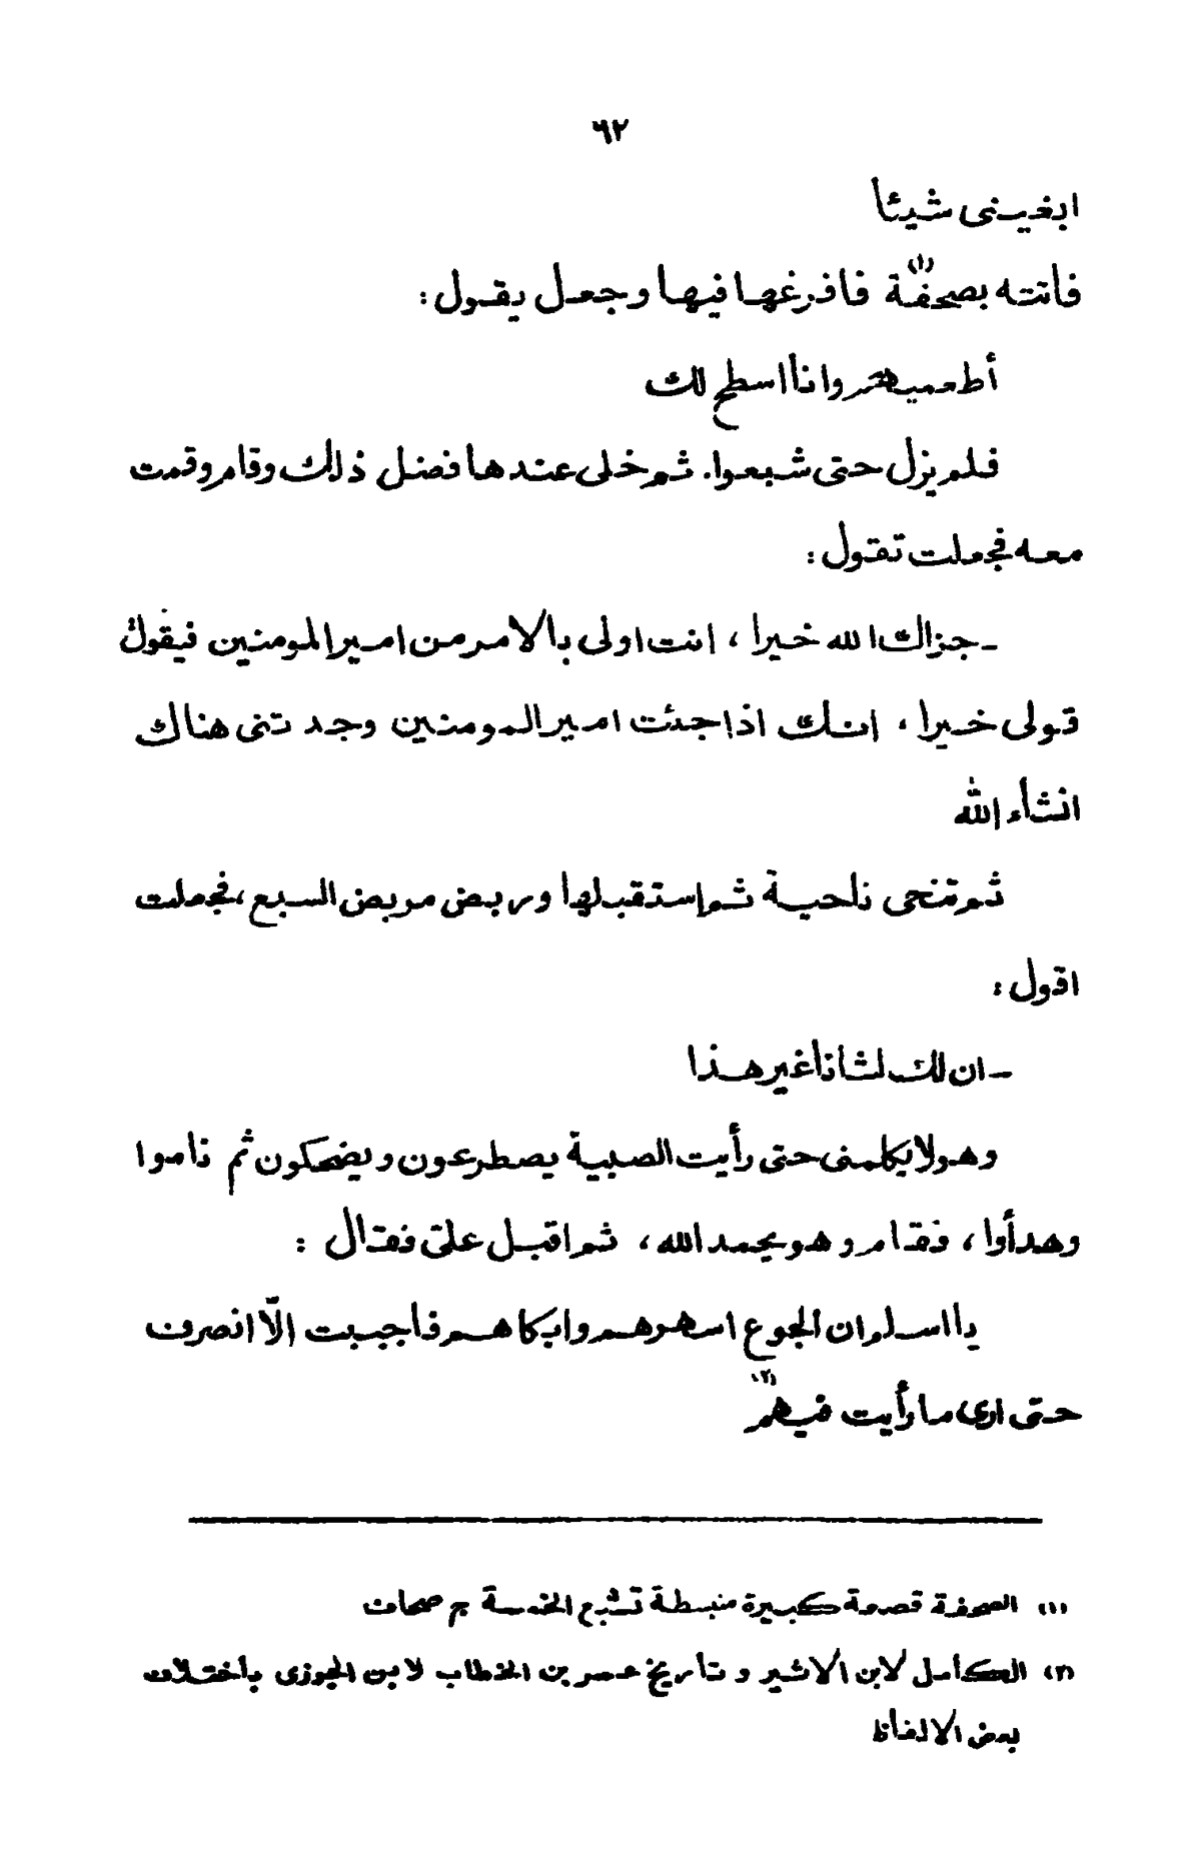 ٦٢
ابغيني شيئا
فاتته بصحفة (١) فافرغها فيها وجعل يقول :
أطعميهم وانا اسطح لك
فلم يزل حتى شبعوا. ثم خلى عندها فضل ذلك وقام وقمت
معه فجعلت تقول :
- جزاك الله خيرا ، انت اولى بالامر من امير المومنين فيقول
قولى خيرا ، انك اذا جئت امير المومنين وجدتنى هناك
انشأء الله
ثم تنحى ناحية ثم إستقبلها وربض مربض السبع ، فجعلت
اقول :
- ان لك لشانا غير هذا
وهو لا يكلمنى حتى رأيت الصبية يصطرعون ويضحكون ثم ناموا
وهدأوا ، فقام وهو يحمد الله ، ثم اقبل على فقال :
يا اسلم ان الجوع اسهرهم وابكاهم فاجببت الّا انصرف
حتى ارى ما رأيت فيهم (٢)
(١) الصحفة قصعة كبيرة منبسطة تشبع الخمسة ج صحاف
(٢) الكامل لابن الاثير و تاريخ عمر بن الخطاب لابن الجوزى بأختلاف
بعض الالفاظ